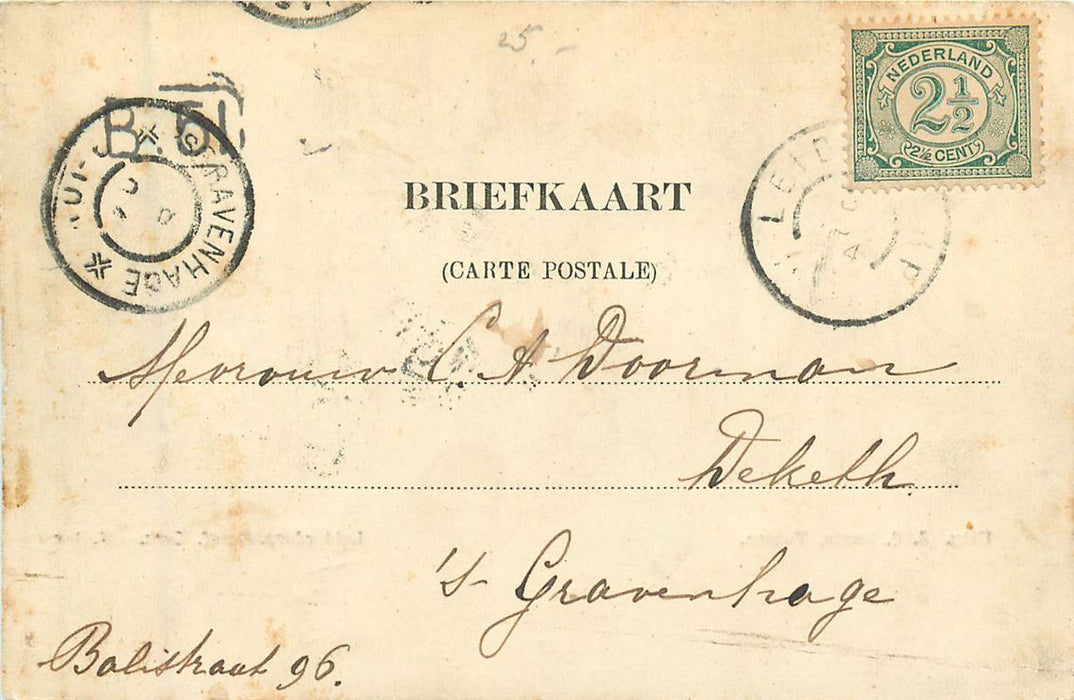 25.-
NEDERLAND
2½
2½ CENT
B. 51
'S-GRAVENHAGE
BRIEFKAART
(CARTE POSTALE)
Mevrouw C. A. Doorman
Deketh.
's-Gravenhage
Balistraat 96.